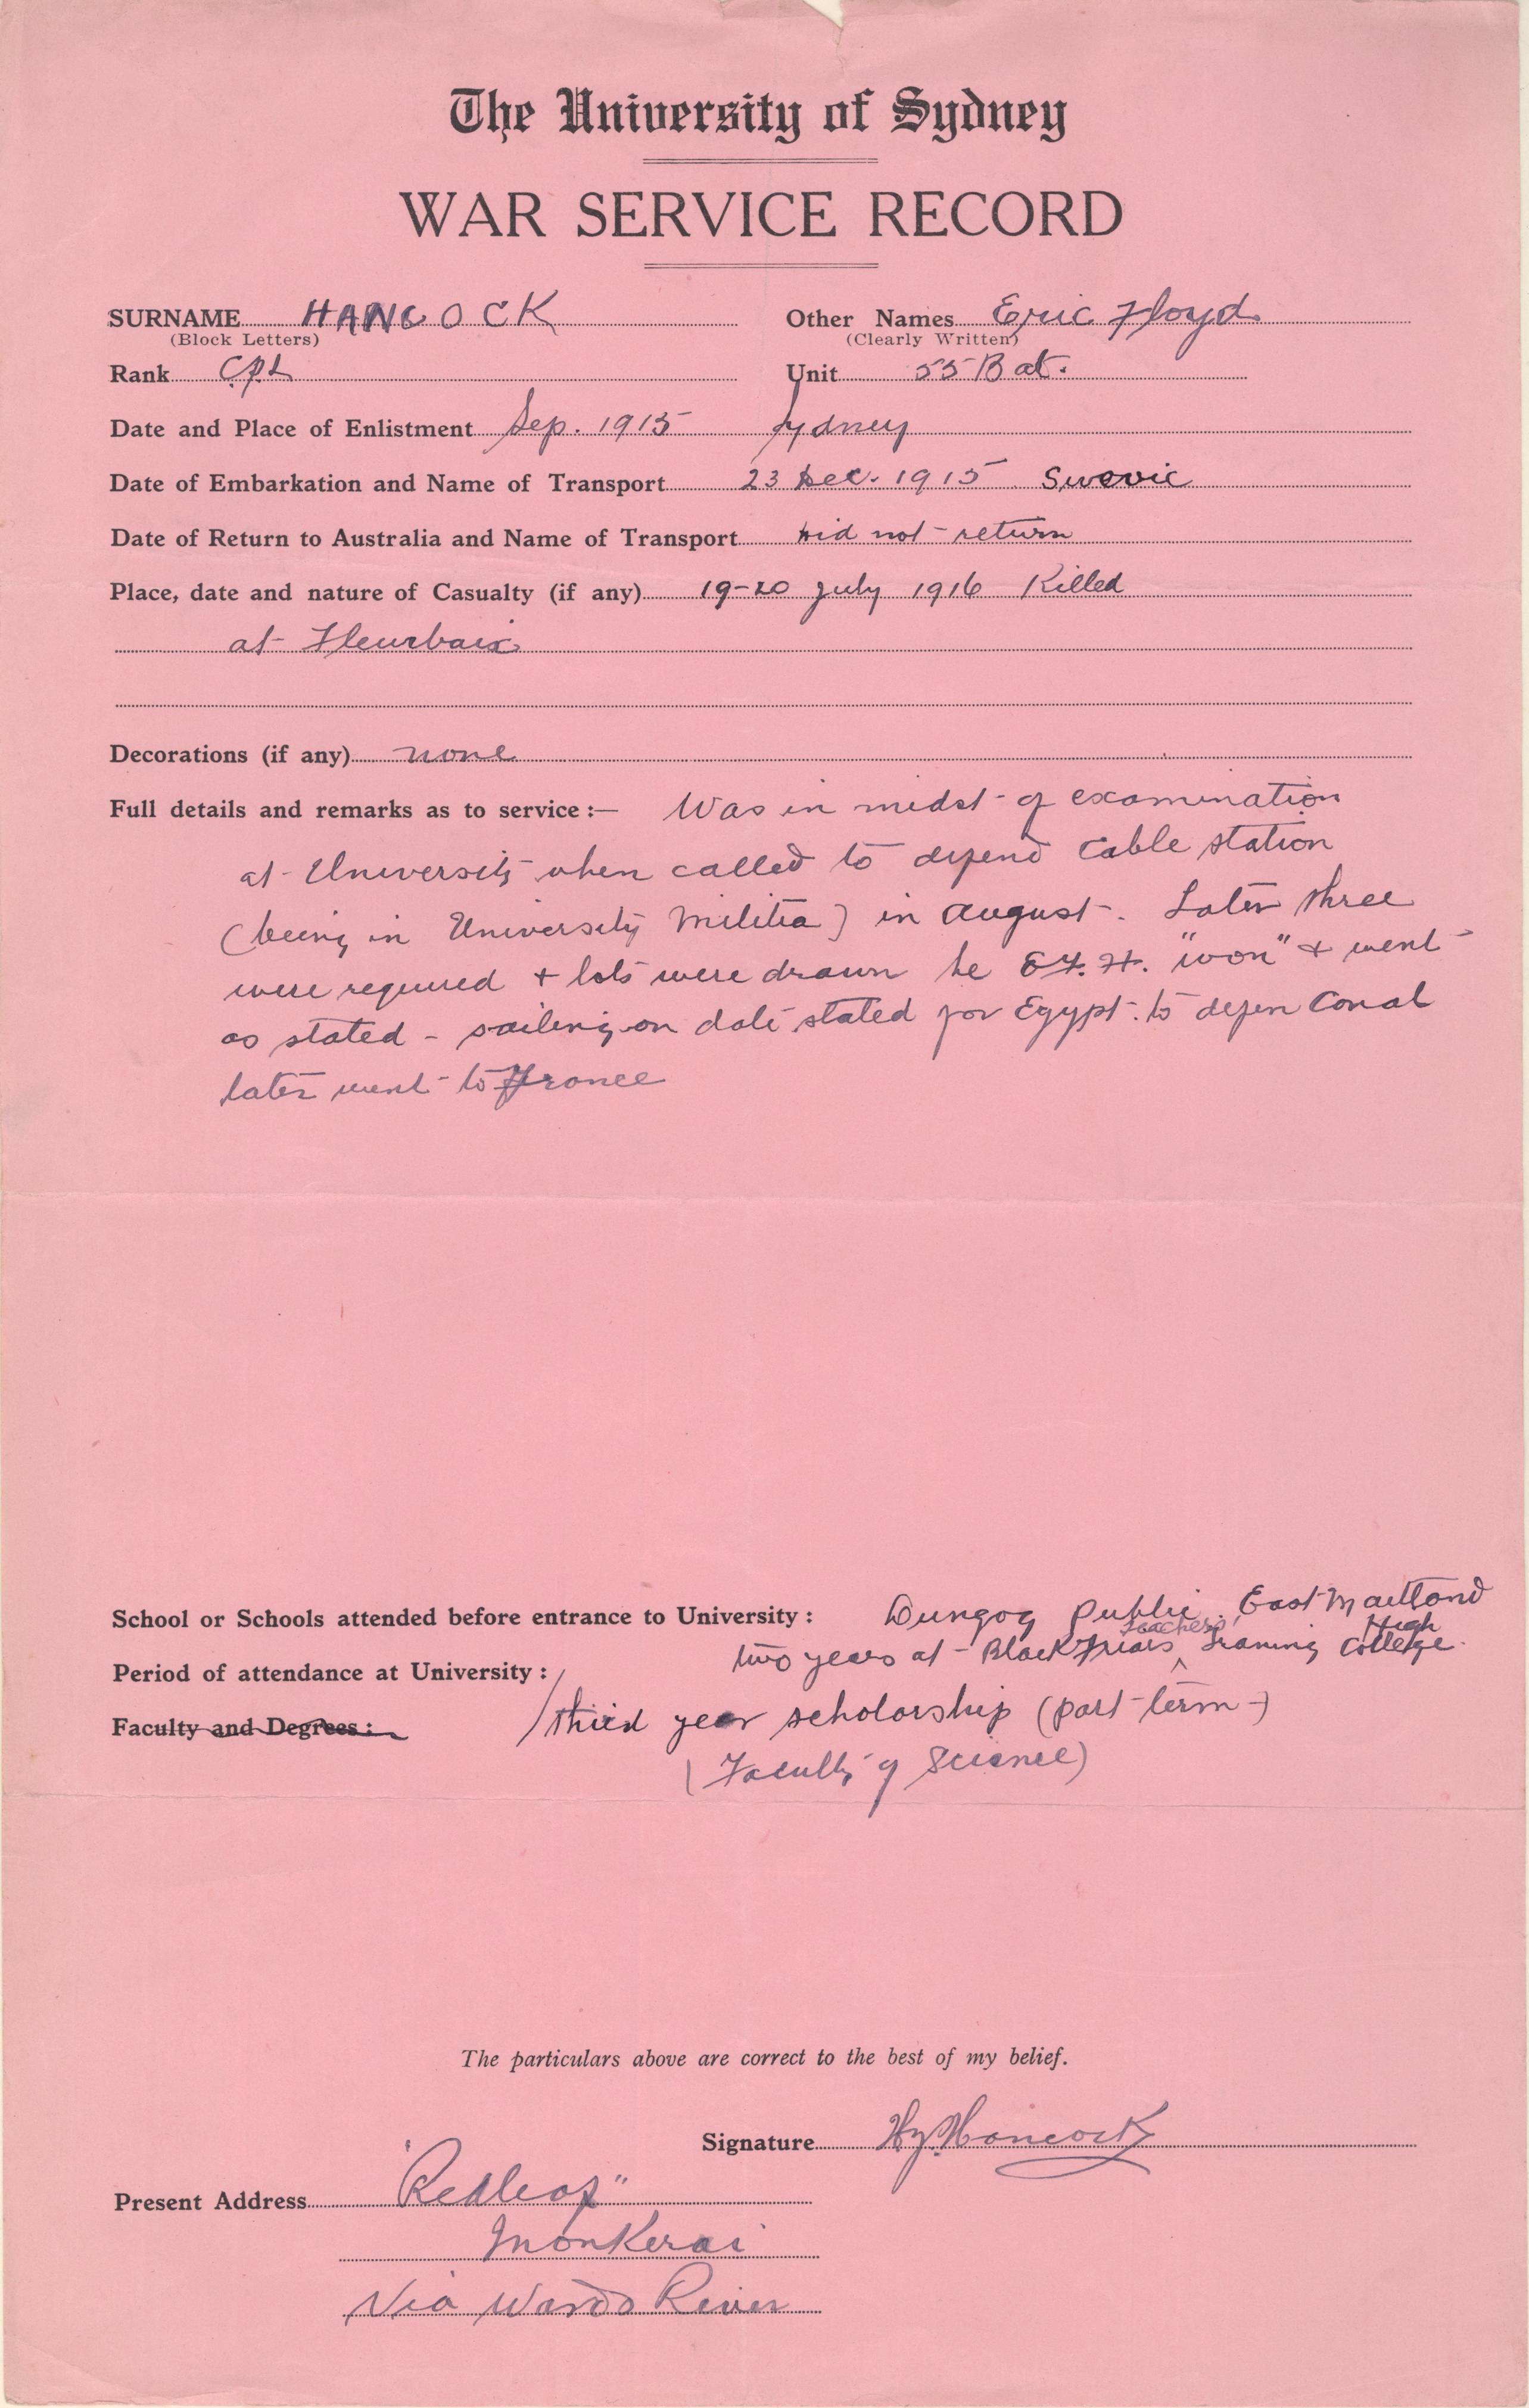 The University of Sydney
WAR SERVICE RECORD
SURNAME HANCOCK Other Names Eric Floyd
(Block Letters) (Clearly Written)
Rank Cpl Unit 55 Bat.
Date and Place of Enlistment Sep. 1915 Sydney
Date of Embarkation and Name of Transport 23 Dec. 1915 Suevic
Date of Return to Australia and Name of Transport Did not return
Place, date and nature of Casualty (if any) 19-20 July 1916 Killed
at Fleurbaix
Decorations (if any) none
Full details and remarks as to service:— Was in midst of examination
at University when called to defend Cable station
(being in University Militia) in August. Later three
were required + lots were drawn he E.F.H. "won" + went
as stated - sailing on date stated for Egypt. to defen Canal
later went to France
School or Schools attended before entrance to University: Dungog Public. East Maitland
High
teachers'
Period of attendance at University: two years at - BlackFriars Training College.
Faculty and Degrees: / third year scholarship (part term)
(Faculty of Science)
The particulars above are correct to the best of my belief.
Signature Hy. Hancock
Present Address "Redleaf"
Monkerai
Via Wards River